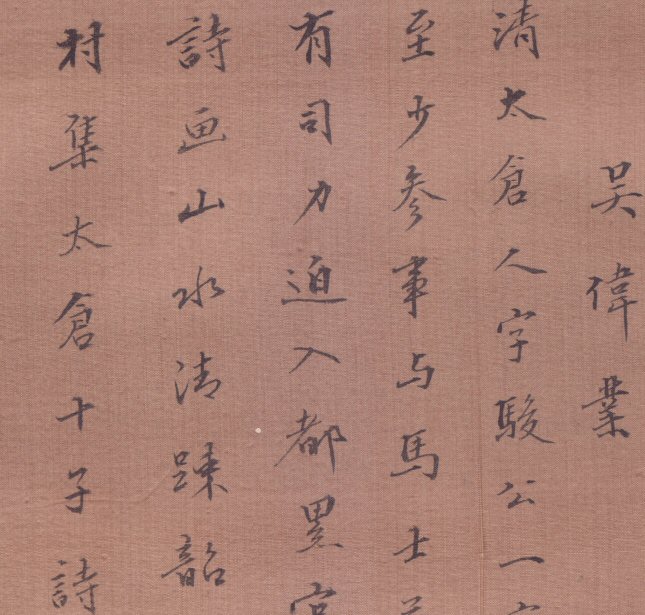 吴偉業
清太倉人字駿公一
至少参事与馬士
有司力迫入都累官
詩画山水清踈韶
村集太倉十子詩